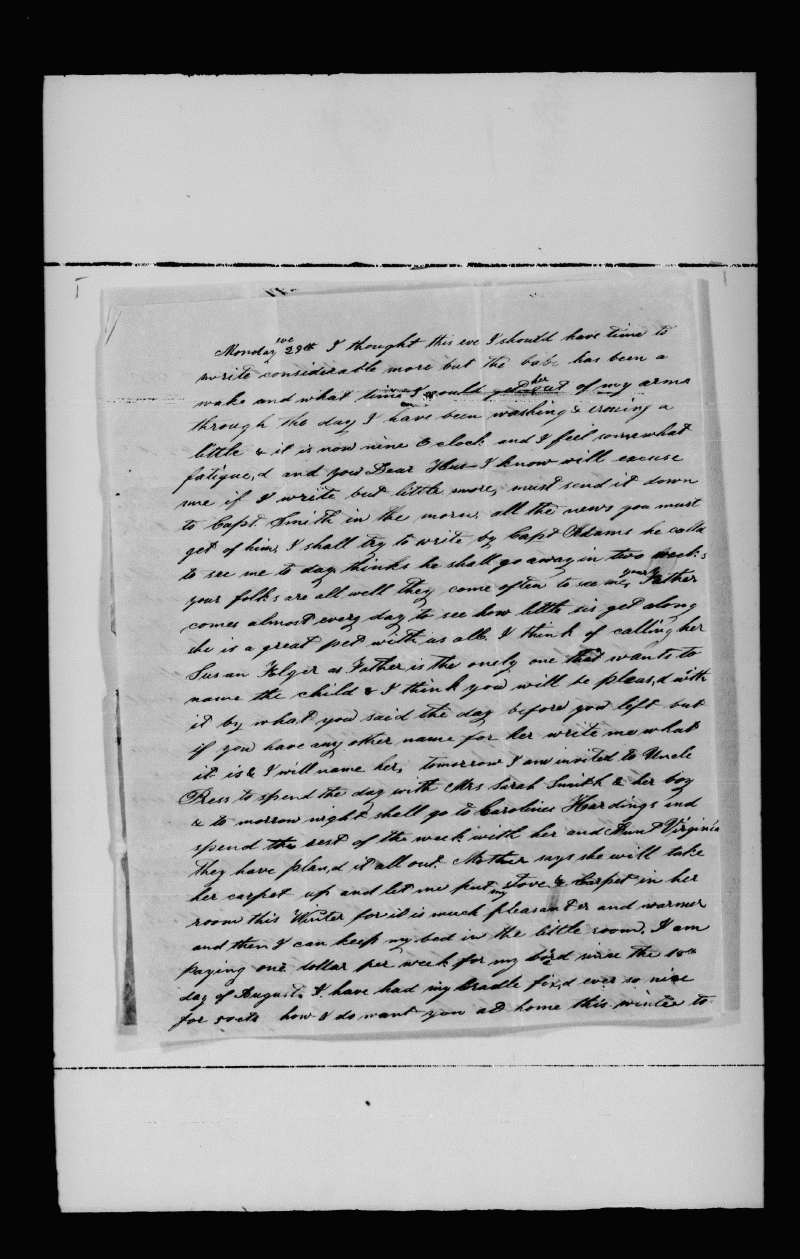 Monday eve 29th I thought this eve I should have time to
write considerable more but the babe has been a
wake and what time I could get her out of my arms
through the day I have been washing & ironing a
little & it is now nine O clock and I feel somewhat
fatigue,d and you Dear Hus- I know will excuse
me if I write but little more, must send it down
to Capt. Smith in the morn, all the news you must
get of him, I shall try to write by Capt Adams he calld
to see me to day thinks he shall go away in two weeks
your folks are all well they come often to see me, your Father
comes almost every day to see how little sis get along
she is a great pet with us all I think of calling her
Susan Folger as Father is the onely one that wants to
name the child & I think you will be pleas,d with
it by what you said the day before you left but
if you have any other name for her write me what
it is & I will name her, tomorrow I am invited to Uncle
Press to spend the day with Mrs Sarah Smith & her boy
& to morrow night shall go to Carolines Hardings and
spend the rest of the week with her and Aunt Virginia
they have plan,d it all out. Mother says she will take
her carpet up and let me put my stove & Carpet in her
room this Winter for it is much pleasanter and warmer
and then I can keep my bed in the little room, I am
paying one dollar per week for my bord since the 10th
day of August, I have had my Cradle fix,d ever so nice
for 50cts how I do want you at home this winter to